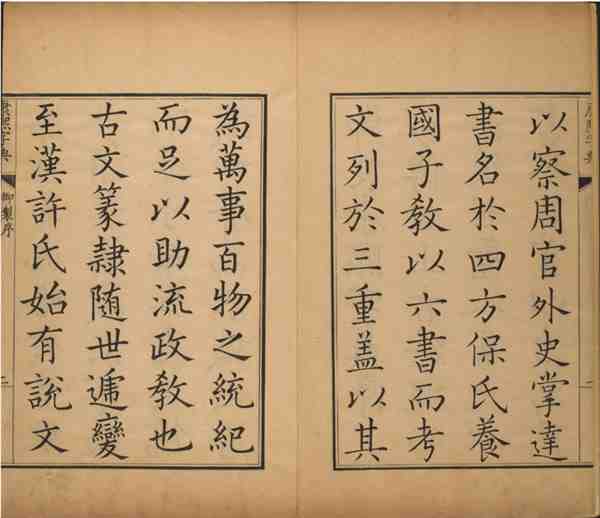 以察周官外史掌達
書名於四方保氏養
國子教以六書而考
文列於三重蓋以其
為萬事百物之統紀
而足以助流政教也
古文篆隸隨世遞變
至漢許氏始有說文
康熙字典
御製序
二